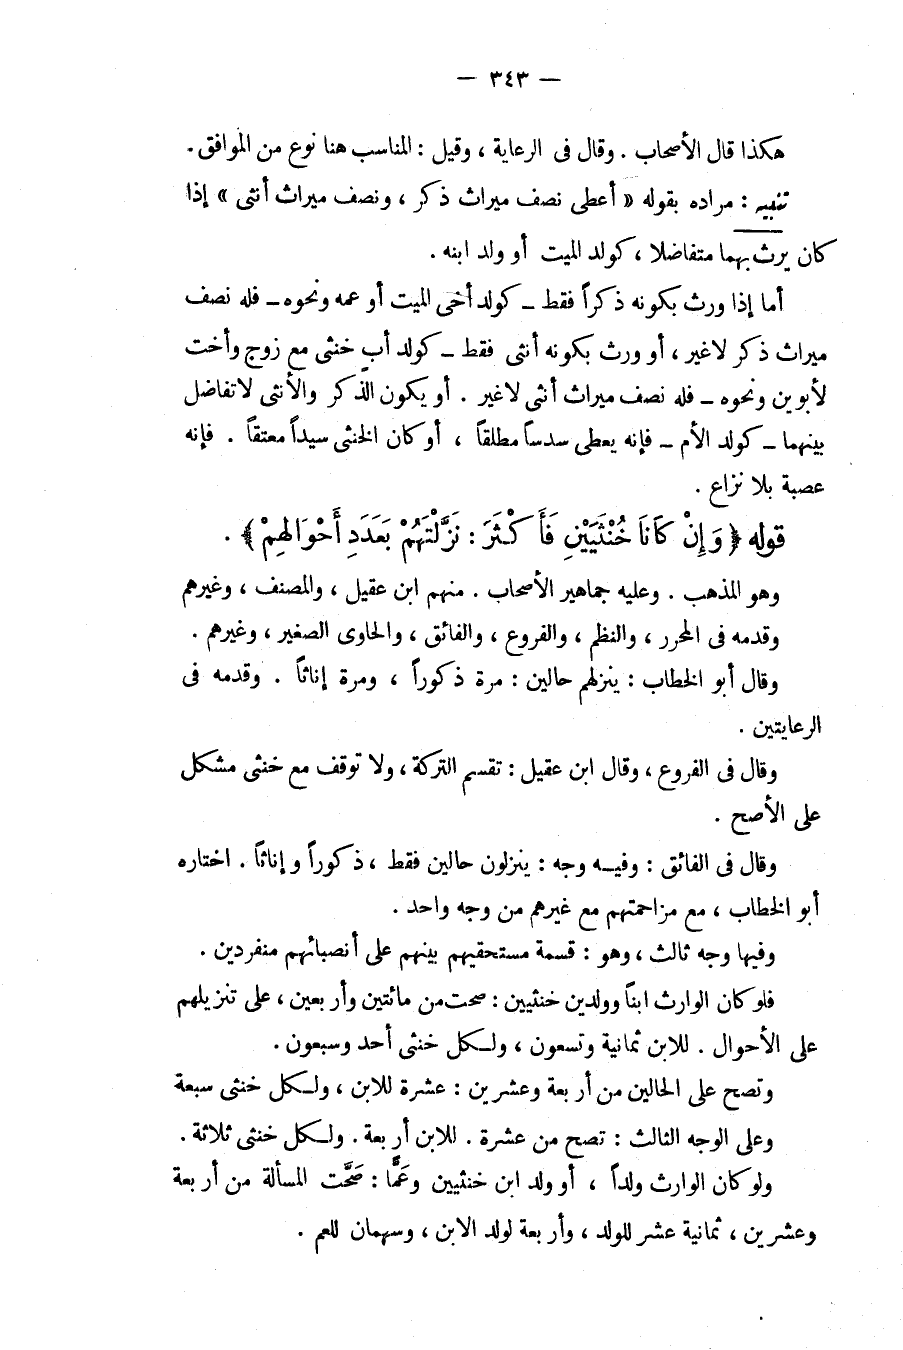 — ٣٤٣ —
هكذا قال الأصحاب . وقال فى الرعاية ، وقيل : المناسب هنا نوع من الموافق .
تنبيه : مراده بقوله « أعطى نصف ميراث ذكر ، ونصف ميراث أنثى » إذا
كان يرث بهما متفاضلا ، كولد الميت أو ولد ابنه .
أما إذا ورث بكونه ذكراً فقط ـ كولد أخى الميت أو عمه ونحوه ـ فله نصف
ميراث ذكر لاغير ، أو ورث بكونه أنثى فقط ـ كولد أبٍ خنثى مع زوج وأخت
لأبوين ونحوه ـ فله نصف ميراث أنثى لاغير . أو يكون الذكر والأنثى لاتفاضل
بينهما ـ كولد الأم ـ فإنه يعطى سدساً مطلقاً ، أو كان الخنثى سيداً معتقاً . فإنه
عصبة بلا نزاع .
قوله ﴿ وَإِنْ كَانَا خُنْثَيَيْنِ فَأَكْثَرَ : نَزَّلْتَهُمْ بَعَدَدِ أَحْوَالِهِمْ ﴾ .
وهو المذهب . وعليه جماهير الأصحاب . منهم ابن عقيل ، والمصنف ، وغيرهم
وقدمه فى المحرر ، والنظم ، والفروع ، والفائق ، والحاوى الصغير ، وغيرهم .
وقال أبو الخطاب : ينزلهم حالين : مرة ذكوراً ، ومرة إناثاً . وقدمه فى
الرعايتين .
وقال فى الفروع ، وقال ابن عقيل : تقسم التركة ، ولا توقف مع خنثى مشكل
على الأصح .
وقال فى الفائق : وفيـه وجه : ينزلون حالين فقط ، ذكوراً وإناثاً . اختاره
أبو الخطاب ، مع مزاحمتهم مع غيرهم من وجه واحد .
وفيها وجه ثالث ، وهو : قسمة مستحقيهم بينهم على أنصبائهم منفردين .
فلو كان الوارث ابناً وولدين خنثيين : صحت من مائتين وأربعين ، على تنزيلهم
على الأحوال . للابن ثمانية وتسعون ، ولـكل خنثى أحد وسبعون .
وتصح على الحالين من أربعة وعشرين : عشرة للابن ، ولـكل خنثى سبعة
وعلى الوجه الثالث : تصح من عشرة . للابن أربعة . ولـكل خنثى ثلاثة .
ولو كان الوارث ولداً ، أو ولد ابن خنثيين وعَمًّا : صَحَّت المسألة من أربعة
وعشرين ، ثمانية عشر للولد ، وأربعة لولد الابن ، وسهمان للعم .